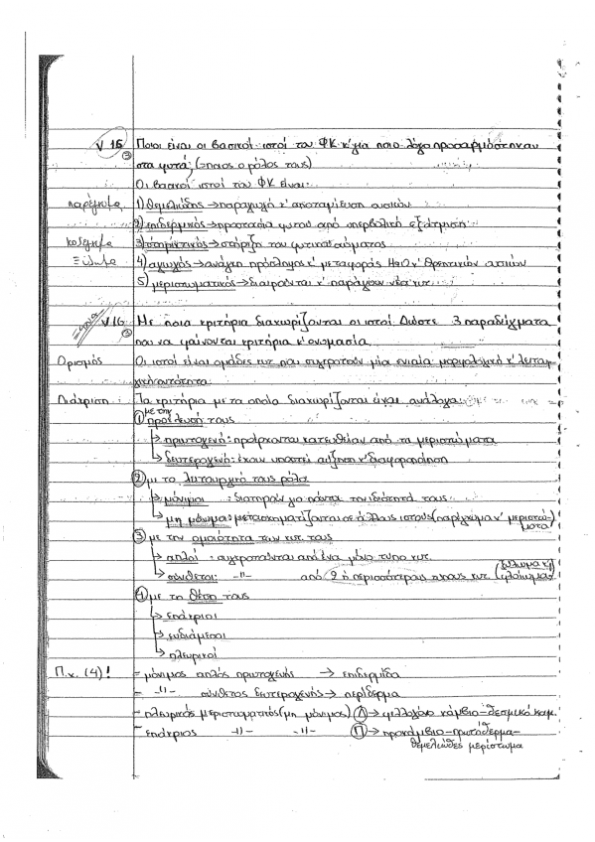 V 15 Ποιοι είναι οι βασικοί ιστοί του ΦΚ κ' για ποιο λόγο προσαρμόστηκαν
στα φυτά; (=ποιος ο ρόλος τους)
Οι βασικοί ιστοί του ΦΚ είναι:
παρέγχυμα 1) θεμελιώδης → παραγωγή κ' αποταμίευση ουσιών
2) επιδερμικός → προστασία φυτού από υπερβολική εξάτμιση
κολέγχυμα 3) στηρικτικός → στήριξη του φυτικού σώματος
Ξύλωμα 4) αγωγός → ανάγκη πρόσληψης κ' μεταφοράς H2O κ' θρεπτικών ουσιών
5) μεριστωματικός → διαιρούνται κ' παράγουν νέα κυτ.
V 16 Με ποια κριτήρια διαχωρίζονται οι ιστοί. Δώστε 3 παραδείγματα
που να φαίνονται κριτήρια κ' ονομασία.
Ορισμός Οι ιστοί είναι ομάδες κυτ. που συγκροτούν μία ενιαία μορφολογικά κ' λειτουρ-
γική οντότητα.
Διάκριση Τα κριτήρια με τα οποία διαχωρίζονται είναι ανάλογα:
① με την προέλευσή τους
→ πρωτογενή: προέρχονται κατευθείαν από τα μεριστώματα
→ δευτερογενή: έχουν υποστεί αύξηση κ' διαφοροποίηση
② με το λειτουργικό τους ρόλο
→ μόνιμοι : διατηρούν για πάντα την ιδιότητά τους
→ μη μόνιμοι: μετασχηματίζονται σε άλλους ιστούς (παρέγχυμα κ' μεριστώ-
ματα)
③ με την ομοιότητα των κυτ. τους
→ απλοί : συγκροτούνται από ένα μόνο τύπο κυτ.
→ σύνθετοι: -''- από 2 ή περισσότερους τύπους κυτ. (ξύλωμα κ' φλοίωμα)
④ με τη θέση τους
→ επάκριοι
→ ενδιάμεσοι
→ πλευρικοί
Π.χ. (4)! - μόνιμος απλός πρωτογενής → επιδερμίδα
- -''- σύνθετος δευτερογενής → περίδερμα
- πλευρικός μεριστωματικός (μη μόνιμος) Δ → φελλογόνο κάμβιο - δεσμικό καμ.
- επάκριος -''- -''- Π → προκάμβιο - πρωτόδερμα -
θεμελιώδες μερίστωμα